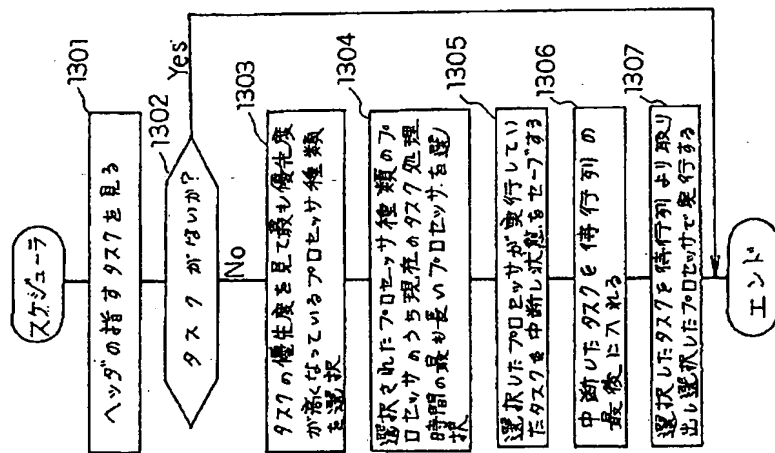 スケジューラ
1301
ヘッダの指すタスクを見る
1302
タスクがないか?
Yes
No
1303
タスクの優先度を見て最も優先度
が高くなっているプロセッサ種類
を選択
1304
選択されたプロセッサ種類のプ
ロセッサのうち現在のタスク処理
時間の最も長いプロセッサを選
択
1305
選択したプロセッサが実行してい
たタスクを中断し状態をセーブする
1306
中断したタスクを待行列の
最後に入れる
1307
選択したタスクを待行列より取り
出し選択したプロセッサで実行する
エンド